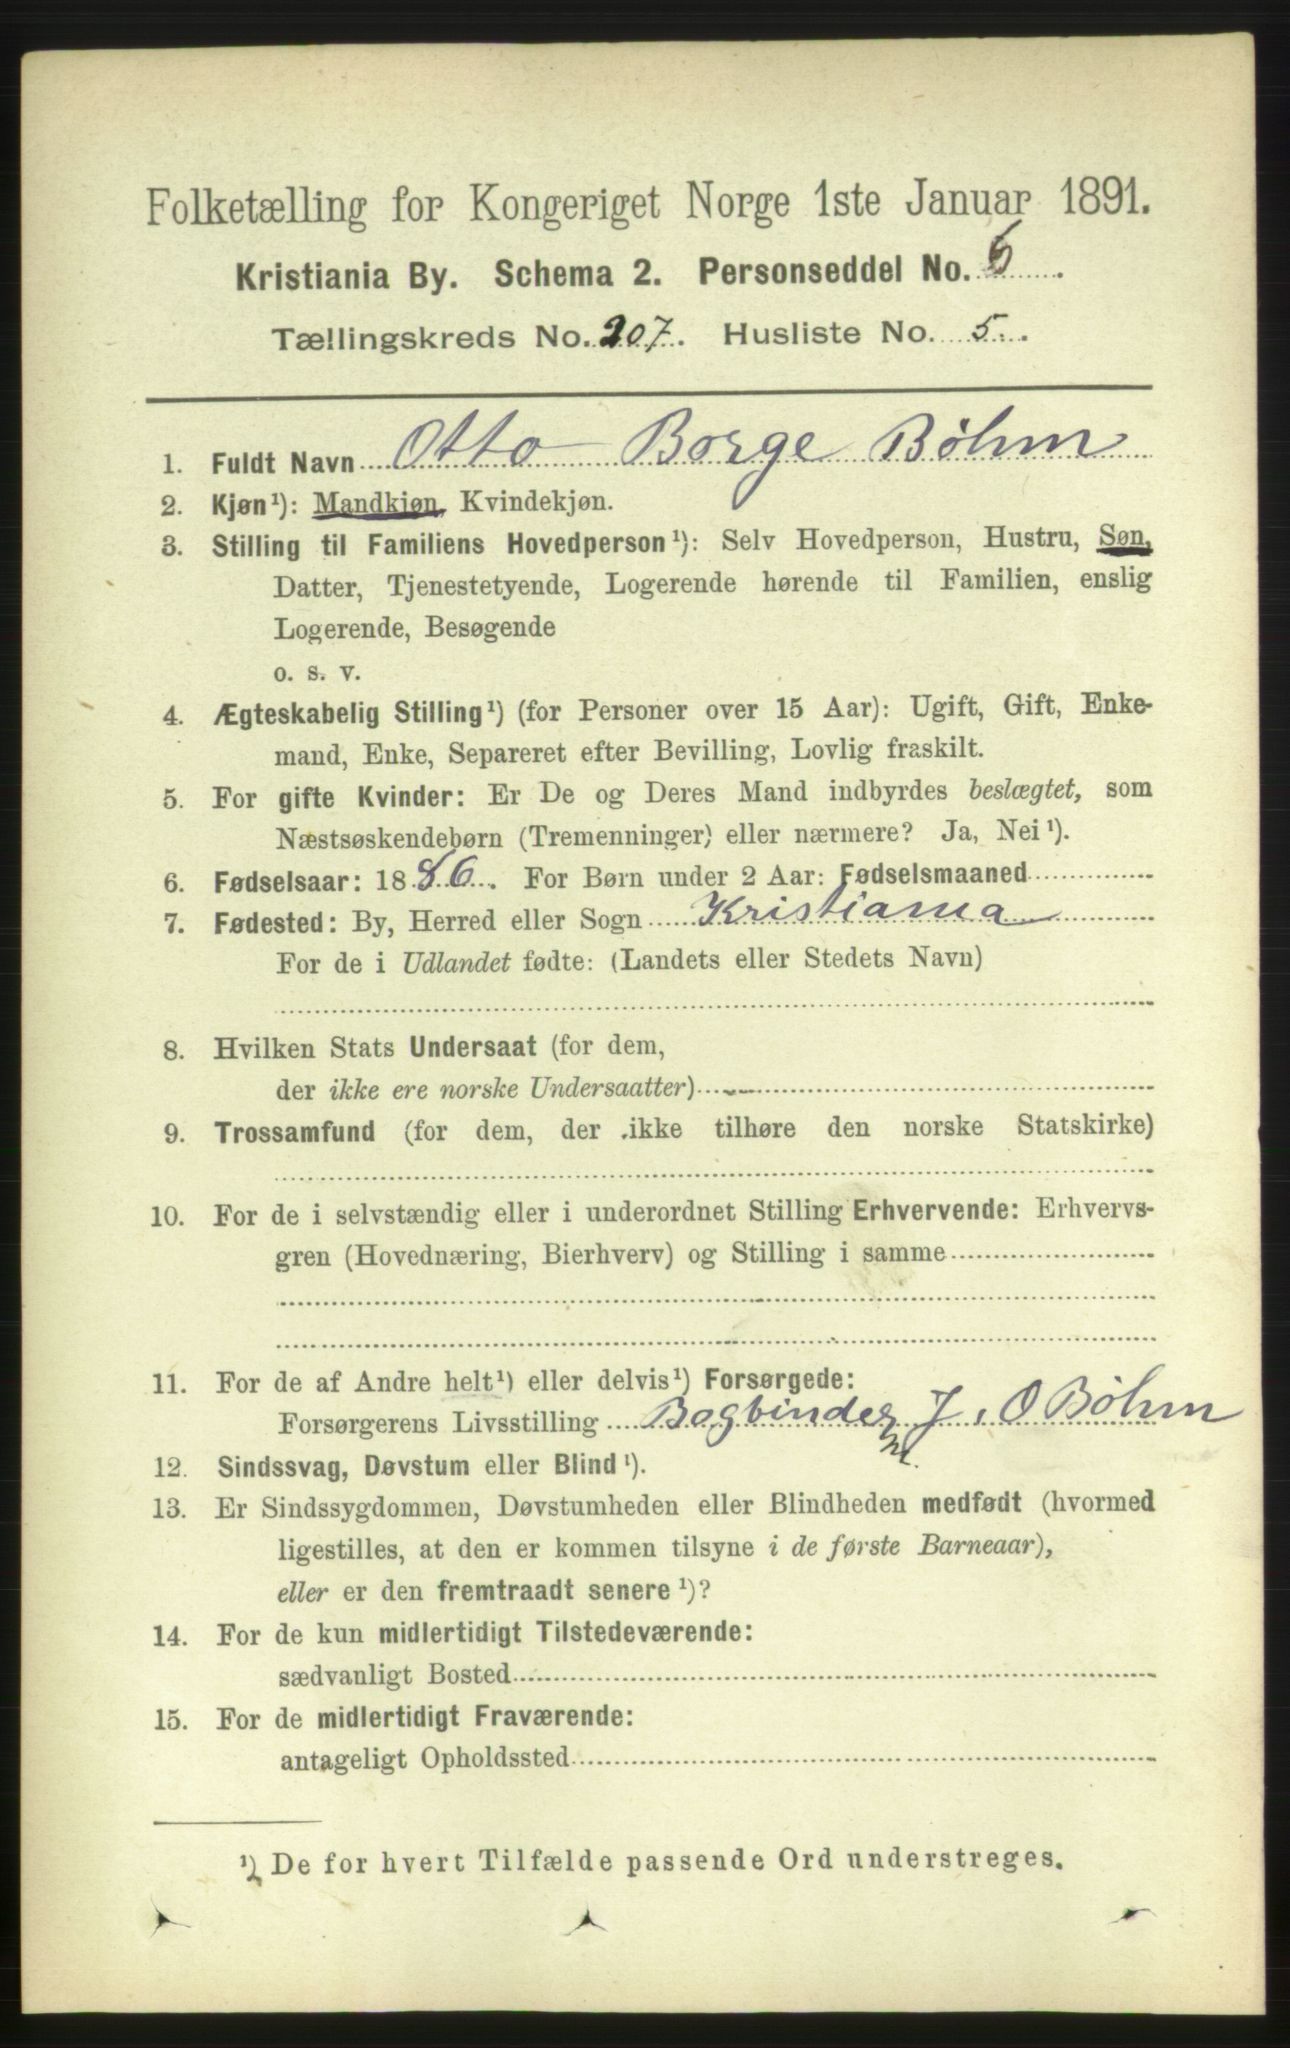 Folketælling for Kongeriget Norge 1ste Januar 1891.
Kristiania By. Schema 2. Personseddel No. 6.
Tællingskreds No. 207. Husliste No. 5.
1. Fuldt Navn Otto Borge Bøhm
2. Kjøn¹): Mandkjøn, Kvindekjøn.
3. Stilling til Familiens Hovedperson¹): Selv Hovedperson, Hustru, Søn,
Datter, Tjenestetyende, Logerende hørende til Familien, enslig
Logerende, Besøgende
o. s. v.
4. Ægteskabelig Stilling¹) (for Personer over 15 Aar): Ugift, Gift, Enke-
mand, Enke, Separeret efter Bevilling, Lovlig fraskilt.
5. For gifte Kvinder: Er De og Deres Mand indbyrdes beslægtet, som
Næstsøskendebørn (Tremenninger) eller nærmere? Ja, Nei¹).
6. Fødselsaar: 1886. For Børn under 2 Aar: Fødselsmaaned
7. Fødested: By, Herred eller Sogn Kristiania
For de i Udlandet fødte: (Landets eller Stedets Navn)
8. Hvilken Stats Undersaat (for dem,
der ikke ere norske Undersaatter)
9. Trossamfund (for dem, der ikke tilhøre den norske Statskirke)
10. For de i selvstændig eller i underordnet Stilling Erhvervende: Erhvervs-
gren (Hovednæring, Bierhverv) og Stilling i samme
11. For de af Andre helt¹) eller delvis¹) Forsørgede:
Forsørgerens Livsstilling Bogbinder J. O Bøhm
12. Sindssvag, Døvstum eller Blind¹).
13. Er Sindssygdommen, Døvstumheden eller Blindheden medfødt (hvormed
ligestilles, at den er kommen tilsyne i de første Barneaar),
eller er den fremtraadt senere¹)?
14. For de kun midlertidigt Tilstedeværende:
sædvanligt Bosted
15. For de midlertidigt Fraværende:
antageligt Opholdssted
¹) De for hvert Tilfælde passende Ord understreges.